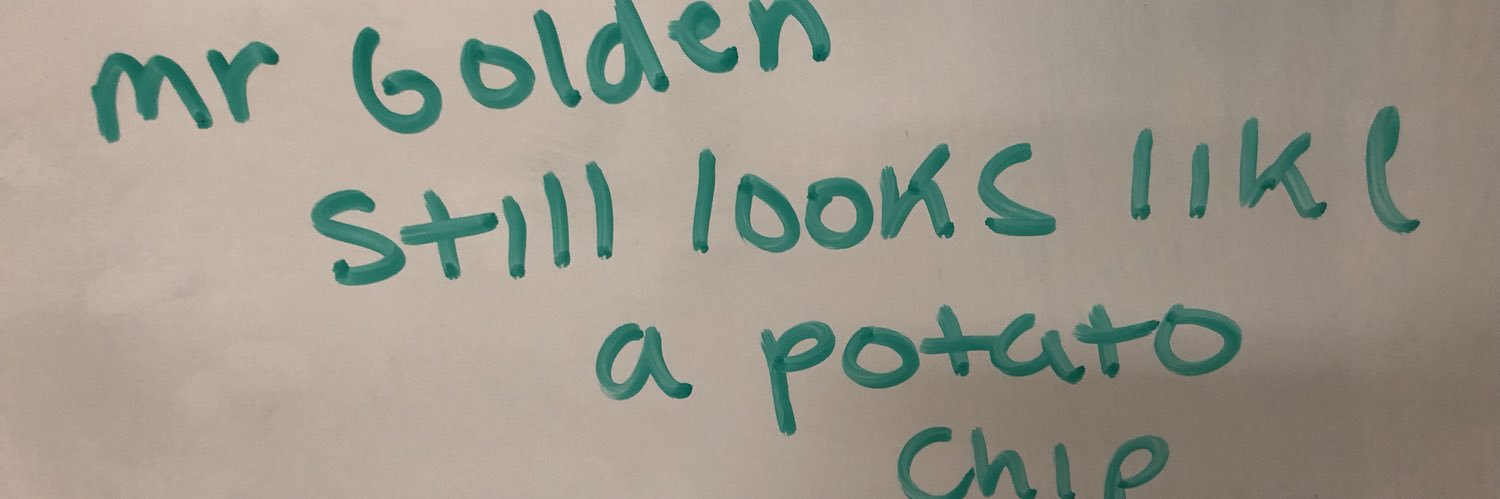 mr Golden
still looks like
a potato
chip